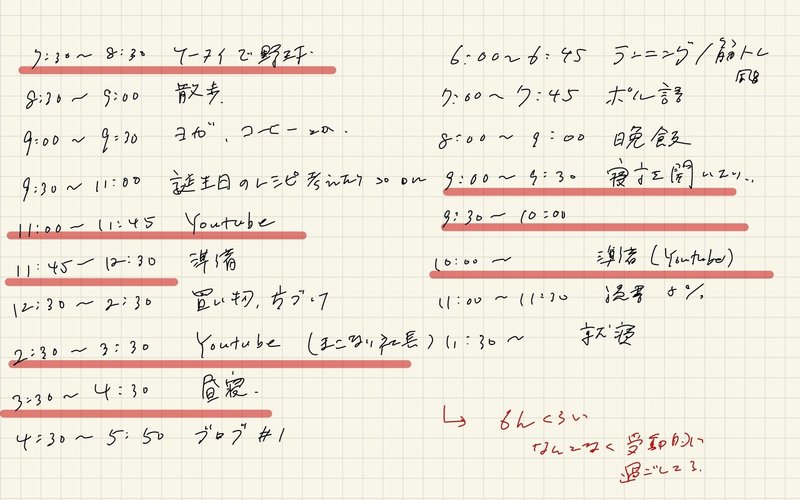 7:30～8:30 ケータイで野球.
8:30～9:00 散歩.
9:00～9:30 ヨガ、コーヒー
9:30～11:00 誕生日のレシピ考えたり so on
11:00～11:45 Youtube
11:45～12:30 準備
12:30～2:30 買い物、片づけ
2:30～3:30 Youtube (まこなり社長)
3:30～4:30 昼寝.
4:30～5:50 ブログ #1
6:00～6:45 ランニング/筋トレ
風呂
7:00～7:45 ポル語
8:00～9:00 晩飯
9:00～9:30
9:30～10:00
10:00～ 準備 (Youtube)
11:00～11:30 読書
11:30～ 就寝
↳ 6hくらい
なんとなく受動的に
過ごしてる.